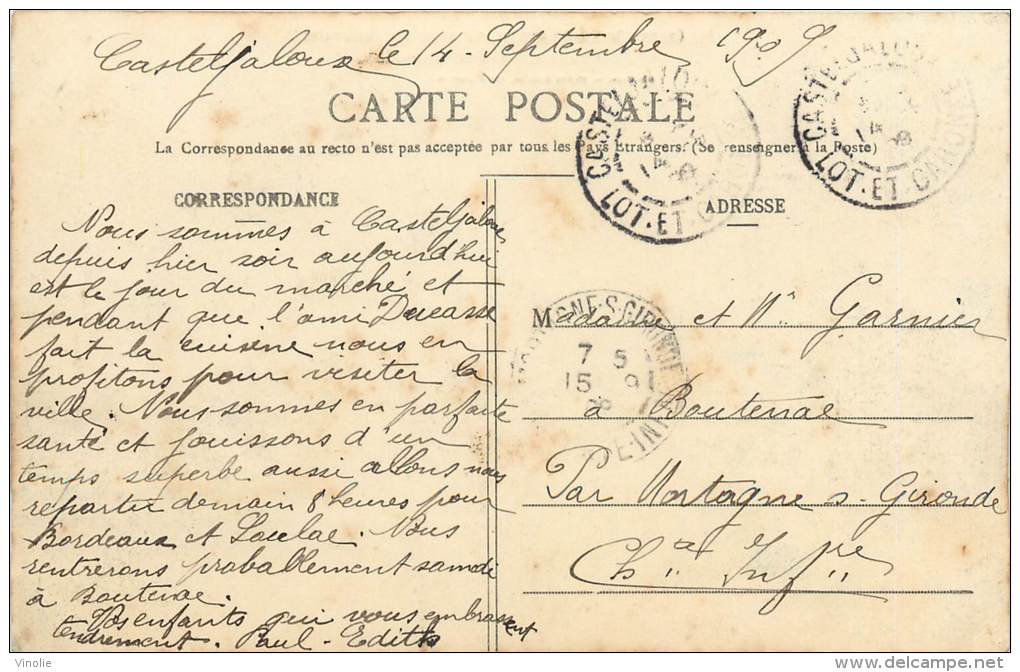 Casteljaloux le 14 Septembre 1909
CARTE POSTALE
La Correspondance au recto n'est pas acceptée par tous les Pays Etrangers. (Se renseigner à la Poste)
CASTELJALOUX
LOT-ET-GARONNE
CASTELJALOUX
LOT-ET-GARONNE
CORRESPONDANCE
Nous sommes à Casteljaloux
depuis hier soir aujourd'hui
est le jour du marché et
pendant que l'ami Ducasse
fait la cuisine nous en
profitons pour visiter la
ville. Nous sommes en parfaite
santé et jouissons d'un
temps superbe aussi allons nous
repartir demain 8 heures pour
Bordeaux et Soulac. Nous
rentrerons probablement samedi
à Boutenac.
Vos enfants qui vous embrassent
tendrement. Paul - Edith
ADRESSE
Madame et Mr Garnier
à Boutenac
Par Mortagne s- Gironde
Chte Infre
MORTAGNE-S-GIRONDE
7 5
15 9
Vinolie
www.delcampe.net